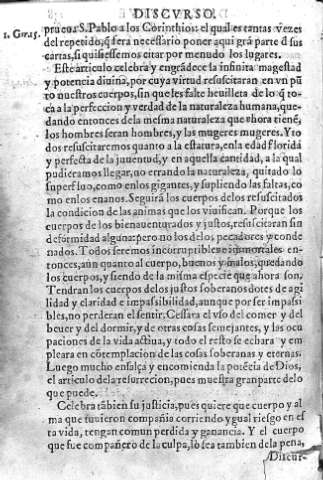 DISCVRSO.
1. Cor. 15.
prueua S. Pablo a los Corinthios: el qual es tantas vezes
del repetido, q̃ sera necessario poner aqui grã parte d̃ sus
cartas, si quisessemos citar por menudo los lugares.
Este articulo celebra y engrãdece la infinita magestad
y potencia diuina, por cuya virtud resuscitaran en vn pũ
to nuestros cuerpos, sin que les falte heuilleta de lo q̃ to
ca a la perfeccion y verdad de la naturaleza humana, que
dando entonces dela mesma naturaleza que ahora tienẽ,
los hombres seran hombres, y las mugeres mugeres. Y to
dos resuscitaremos quanto a la estatura, en la edad florida
y perfecta de la juuentud, y en aquella cantidad, a la qual
pudieramos llegar, no errando la naturaleza, quitado lo
superfluo, como en los gigantes, y supliendo las faltas, co
mo en los enanos. Seguirá los cuerpos delos resuscitados
la condicion de las animas que los viuifican. Porque los
cuerpos de los bienauenturados y justos, resuscitaran sin
deformidad alguna: pero no los delos pecadores y conde
nados. Todos seremos incorruptibles e immortales en-
tonces, aun quanto al cuerpo, buenos y malos, quedando
los cuerpos, y siendo de la misma especie que ahora son.
Tendran los cuerpos delos justos soberanos dotes de agi
lidad y claridad e impassibilidad, aunque por ser impassi
bles, no perderan el sentir. Cessara el vso del comer y del
beuer y del dormir, y de otras cosas semejantes, y las ocu
paciones de la vida actiua, y todo el resto se echara y em
pleara en cõtemplacion de las cosas soberanas y eternas.
Luego mucho ensalça y encomienda la potẽcia de Dios,
el articulo dela resurrecion, pues muestra gran parte delo
que puede.
Celebra tãbien su justicia, pues quiere que cuerpo y al
ma que fuuieron compañia corriendo ygual riesgo en es
ta vida, tengan comun perdida y ganancia. Y el cuerpo
que fue compañero de la culpa, lo sea tambien dela pena,
Discur-